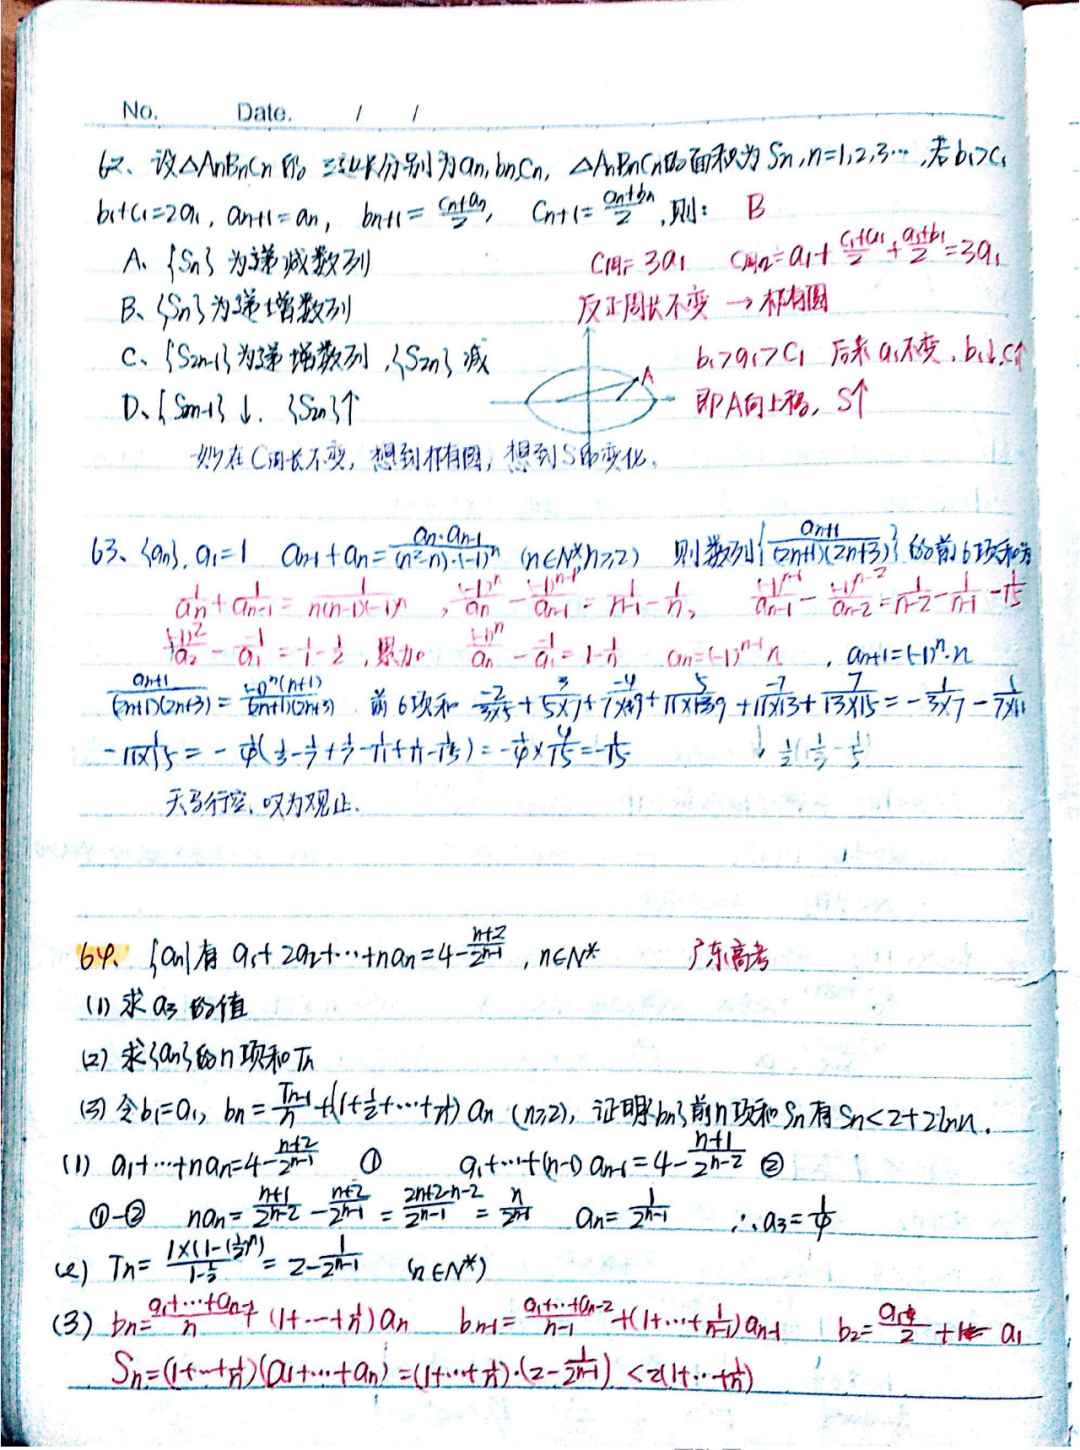 No. Date. / /
62、设△AnBnCn的三边长分别为an,bn,cn, △AnBnCn的面积为Sn,n=1,2,3…,若b₁>c₁
b₁+c₁=2a₁, an+1=an, bn+1=(cn+an)/2, Cn+1=(an+bn)/2,则: B
A、{Sn}为递减数列 C周₁=3a₁ C周₂=a₁+(c₁+a₁)/2+(a₁+b₁)/2=3a₁
B、{Sn}为递增数列 反正周长不变→椭圆
C、{S2n-1}为递增数列,{S2n}减 b₁>a₁>c₁ 后来a₁不变,b₁↓,c↑
D、{S2n-1}↓. {S2n}↑ A 即A向上移, S↑
妙在C周长不变,想到椭圆,想到S的变化.
63、{an},a₁=1 an-1+an=(an·an-1)/((n²-n)·(-1)ⁿ) (n∈N*,n≥2) 则数列{an+1/((2n+1)(2n+3))}的前6项和为
1/an+1/an-1=1/(n(n-1)(-1)ⁿ), (-1)ⁿ/an-(-1)ⁿ⁻¹/an-1=1/(n-1)-1/n, (-1)ⁿ⁻¹/an-1-(-1)ⁿ⁻²/an-2=1/(n-2)-1/(n-1) -1/15
(-1)²/a₂-(-1)/a₁=1/1-1/2,累加 (-1)ⁿ/an-(-1)/a₁=1-1/n an=(-1)ⁿ⁻¹n , an+1=(-1)ⁿ·n
an+1/((2n+1)(2n+3))=(-1)ⁿ(n+1)/((2n+1)(2n+3)) 前6项和 -2/(3×5)+3/(5×7)+-4/(7×9)+5/(11×9)+-7/(11×13)+7/(13×15)=-1/(3×7)-1/(7×11)
-1/(11×15)=-1/4(1/3-1/7+1/7-1/11+1/11-1/15)=-1/4×4/15=-1/15 ↓ 1/2(1/3-1/5)
天马行空,叹为观止.
64、{an}有a₁+2a₂+…+nan=4-(n+2)/2ⁿ⁻¹, n∈N* 广东高考
(1)求a₃的值
(2)求{an}的n项和Tn
(3)令b₁=a₁, bn=Tn-1/n+(1+1/2+…+1/n)an (n≥2), 证明{bn}前n项和Sn有Sn<2+2lnn.
(1) a₁+…+nan=4-(n+2)/2ⁿ⁻¹ ① a₁+…+(n-1)an-1=4-(n+1)/2ⁿ⁻² ②
①-② nan=(n+1)/2ⁿ⁻²-(n+2)/2ⁿ⁻¹=(2n+2-n-2)/2ⁿ⁻¹=n/2ⁿ⁻¹ an=1/2ⁿ⁻¹ ∴a₃=1/4
(2) Tn=1×(1-(1/2)ⁿ)/(1-1/2)=2-1/2ⁿ⁻¹ (n∈N*)
(3) bn=(a₁+…+an-1)/n+(1+…+1/n)an bn-1=(a₁+…+an-2)/(n-1)+(1+…+1/(n-1))an-1 b₂=a₁/2+ a₁
Sn=(1+…+1/n)(a₁+…+an)=(1+…+1/n)·(2-1/2ⁿ⁻¹)<2(1+…+1/n)